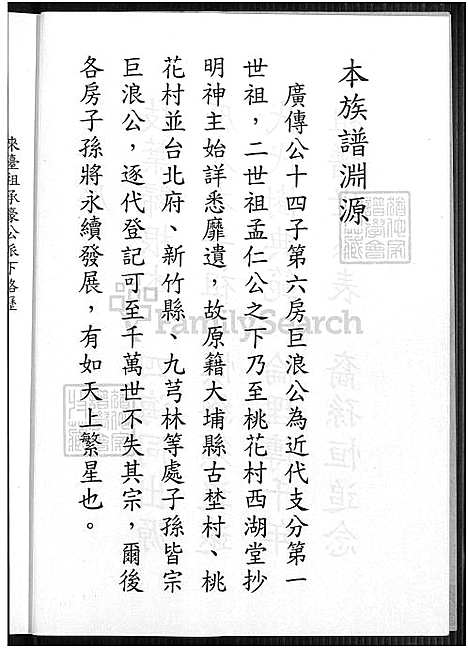 本族譜淵源
廣傳公十四子第六房巨浪公為近代支分第一
世祖，二世祖孟仁公之下乃至桃花村西湖堂抄
明神主始詳悉靡遺，故原籍大埔縣古埜村、桃
花村並台北府、新竹縣、九芎林等處子孫皆宗
巨浪公，逐代登記可至千萬世不失其宗，爾後
各房子孫將永續發展，有如天上繁星也。
來臺祖承豪公派下
FamilySearch